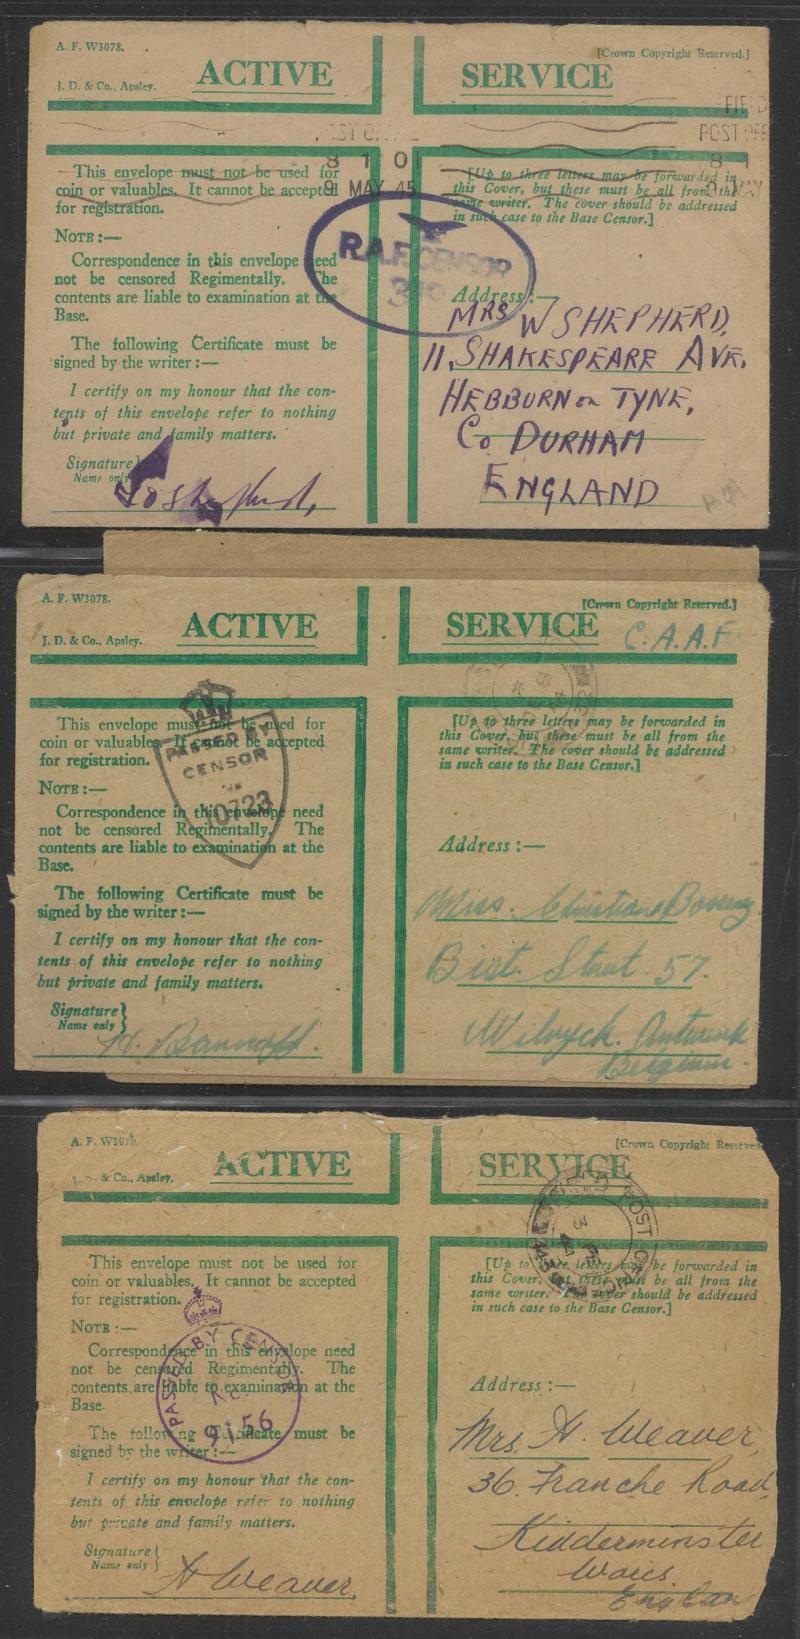 A. F. W3078.
[Crown Copyright Reserved.]
J. D. & Co., Apsley.
ACTIVE SERVICE
FIELD
POST OFFICE
POST OFF
8 1 0
8 1
9 MAY 45
MAY
This envelope must not be used for
coin or valuables. It cannot be accepted
for registration.
NOTE:—
Correspondence in this envelope need
not be censored Regimentally. The
contents are liable to examination at the
Base.
The following Certificate must be
signed by the writer:—
I certify on my honour that the con-
tents of this envelope refer to nothing
but private and family matters.
Signature
Name only
[Up to three letters may be forwarded in
this Cover, but these must be all from the
same writer. The cover should be addressed
in such case to the Base Censor.]
R.A.F. CENSOR
Address:—
MRS W SHEPHERD,
11, SHAKESPEARE AVE,
HEBBURN on TYNE,
Co DURHAM
ENGLAND
A. F. W3078.
[Crown Copyright Reserved.]
J. D. & Co., Apsley.
ACTIVE SERVICE
C.A.A.F.
This envelope must not be used for
coin or valuables. It cannot be accepted
for registration.
NOTE:—
Correspondence in this envelope need
not be censored Regimentally. The
contents are liable to examination at the
Base.
The following Certificate must be
signed by the writer:—
I certify on my honour that the con-
tents of this envelope refer to nothing
but private and family matters.
Signature
Name only
PASSED BY
CENSOR
10723
[Up to three letters may be forwarded in
this Cover, but these must be all from the
same writer. The cover should be addressed
in such case to the Base Censor.]
Address:—
Miss. Christiane
Bist. Street. 57.
Wilryck. Antwerp
Belgium.
A. F. W3078.
[Crown Copyright Reserved
& Co., Apsley.
ACTIVE SERVICE
FIELD POST OFFICE
This envelope must not be used for
coin or valuables. It cannot be accepted
for registration.
NOTE:—
Correspondence in this envelope need
not be censored Regimentally. The
contents are liable to examination at the
Base.
The following Certificate must be
signed by the writer:—
I certify on my honour that the con-
tents of this envelope refer to nothing
but private and family matters.
Signature
Name only
H Weaver
PASSED BY CENSOR
No.
9156
[Up to three letters may be forwarded in
this Cover, but these must be all from the
same writer. The cover should be addressed
in such case to the Base Censor.]
Address:—
Mrs. H. Weaver,
36. Franche Road,
Kidderminster
Worcs,
England